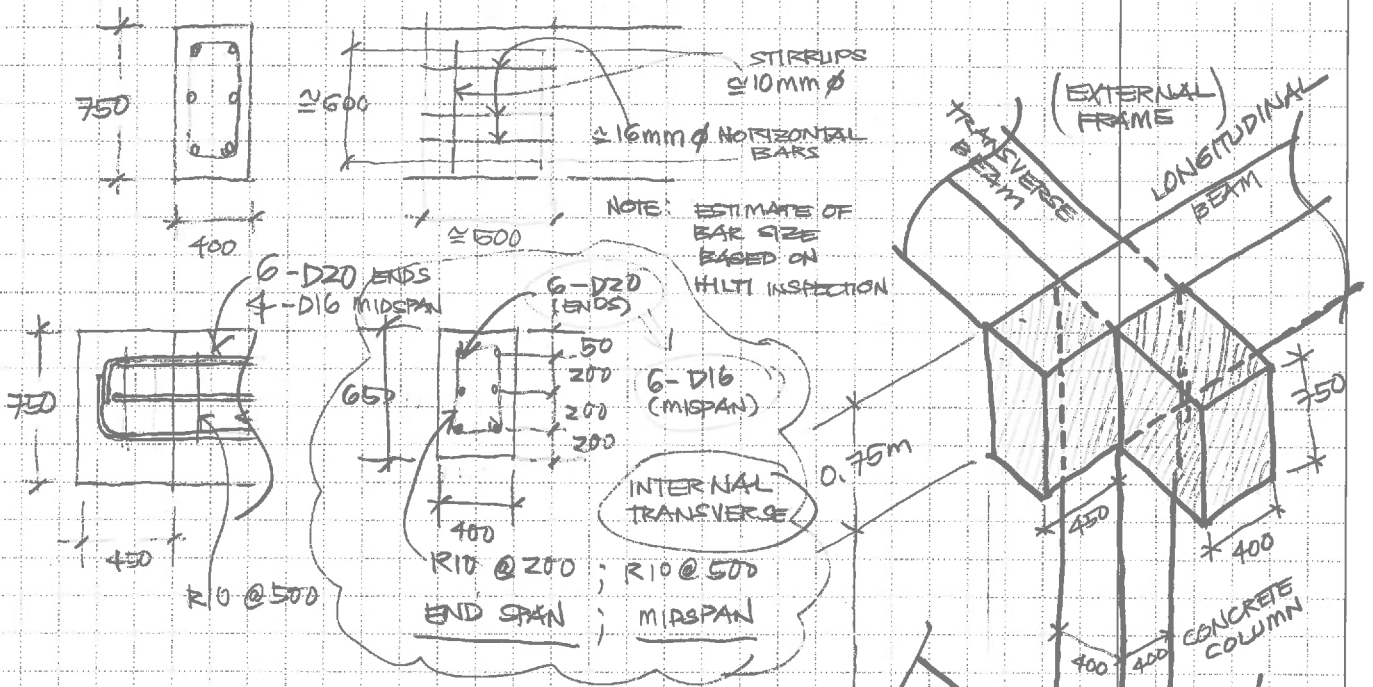 750
400
≅600
≅600
STIRRUPS
≅10mm ϕ
≅16mm ϕ HORIZONTAL
BARS
NOTE: ESTIMATE OF
BAR SIZE
BASED ON
HILTI INSPECTION
6-D20 ENDS
4-D16 MIDSPAN
750
450
R10 @500
6-D20
(ENDS)
650
50
200
200
200
6-D16
(MISPAN)
400
INTERNAL
TRANSVERSE
R10 @ 200 ; R10 @ 500
END SPAN ; MIDSPAN
(EXTERNAL
FRAME)
TRANSVERSE
BEAM
LONGITUDINAL
BEAM
0.75m
750
450
400
400
400
CONCRETE
COLUMN